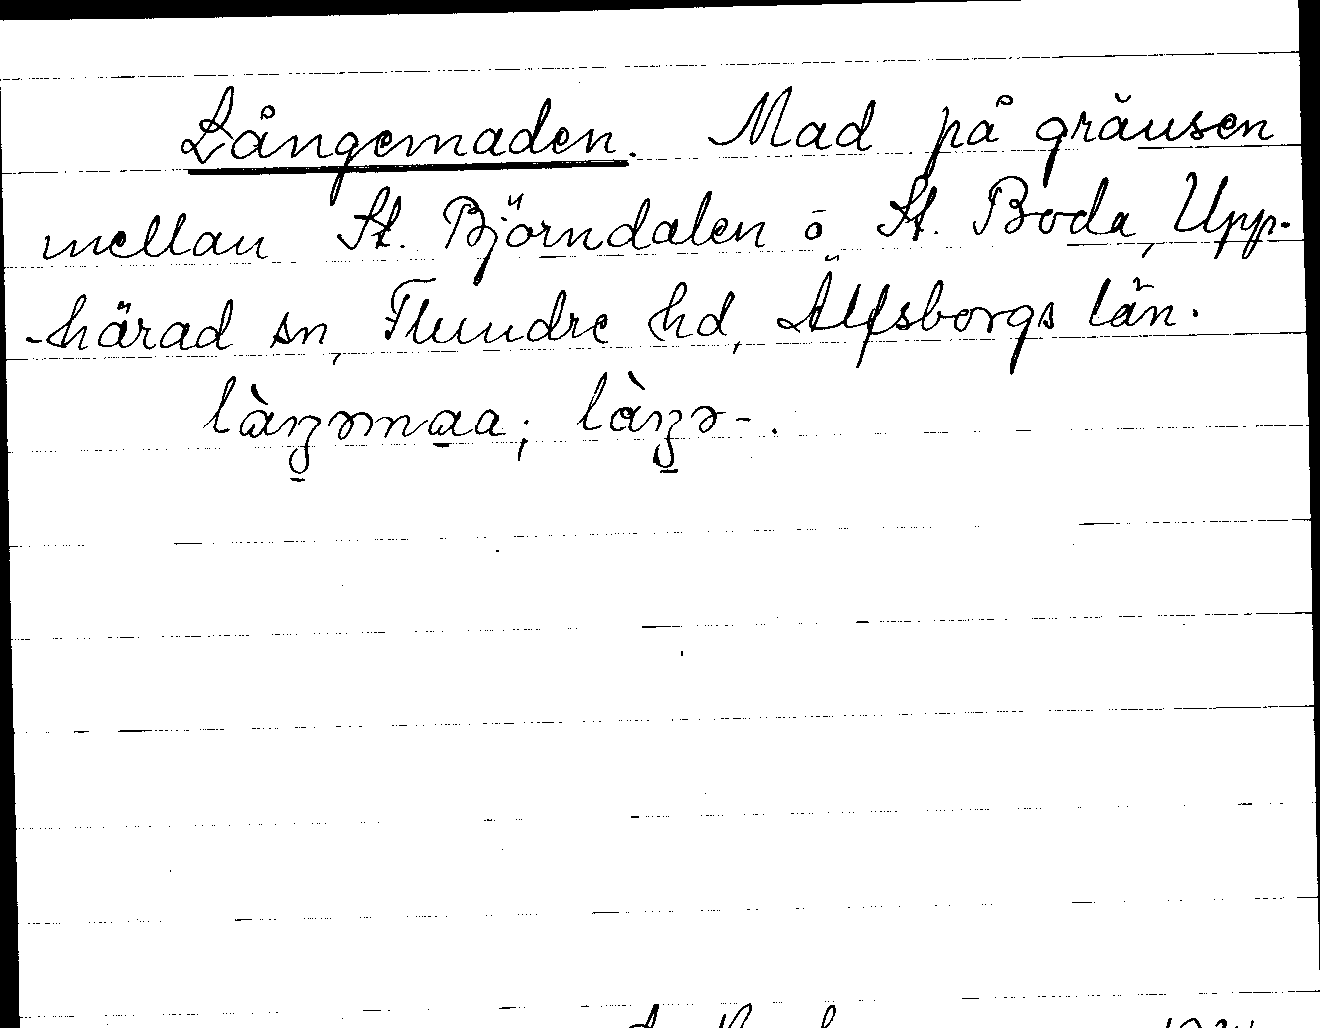 Långemaden. Mad på gränsen
mellan St. Björndalen o St. Boda, Upp-
-härad sn, Flundre hd, Älfsborgs län.